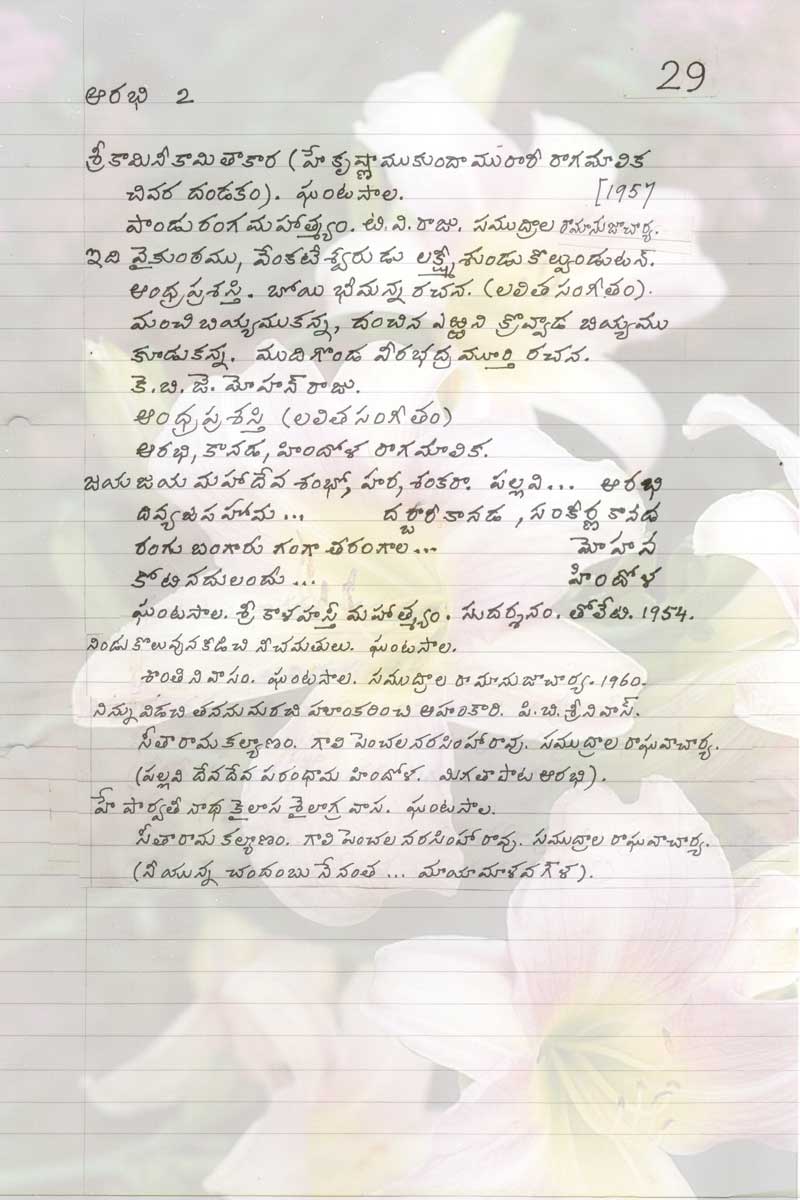 29
ఆరభి 2
శ్రీకామినీకామితాకార (హే కృష్ణా ముకుందా మురారీ రాగమాలిక
చివర దండకం). ఘంటసాల. [1957
పాండురంగమహాత్మ్యం. టి.వి.రాజు. సముద్రాల రామానుజాచార్య.
ఇది వైకుంఠము, వేంకటేశ్వరుడు లక్ష్మీశుండు కొల్వుండుటన్.
ఆంధ్రప్రశస్తి. బోయి భీమన్న రచన. (లలిత సంగీతం).
మంచి బియ్యముకన్న, దంచిన ఎఱ్ఱని క్రొవ్వాడ బియ్యము
కూడుకన్న. ముదిగొండ వీరభద్రమూర్తి రచన.
కె.బి.జె. మోహన్ రాజు.
ఆంధ్రప్రశస్తి (లలిత సంగీతం)
ఆరభి, కానడ, హిందోళ రాగమాలిక.
జయ జయ మహాదేవ శంభో, హర, శంకరా. పల్లవి... ఆరభి
దివ్యజపహోమ... దర్బారీకానడ, సంకీర్ణ కానడ
రంగు బంగారు గంగా తరంగాల... మోహన
కోటి నదులందు... హిందోళ
ఘంటసాల. శ్రీ కాళహస్తి మహాత్మ్యం. సుదర్శనం. తోలేటి. 1954.
నిండు కొలువున కీడిచి నీచమతులు. ఘంటసాల.
శాంతి నివాసం. ఘంటసాల. సముద్రాల రామానుజాచార్య. 1960.
నిన్ను విడచి తననుమరచి హలంకరించి అహంకారి. పి.బి.శ్రీనివాస్.
సీతారామకల్యాణం. గాలి పెంచల నరసింహారావు. సముద్రాల రాఘవాచార్య.
(పల్లవి దేవదేవ పరంధామ హిందోళ. మిగతాపాట ఆరభి).
హే పార్వతీ నాథ కైలాస శైలాగ్ర వాస. ఘంటసాల.
సీతారామ కల్యాణం. గాలి పెంచల నరసింహారావు. సముద్రాల రాఘవాచార్య.
(నీ యున్న చందంబు నేనంత ... మాయామాళవగౌళ).